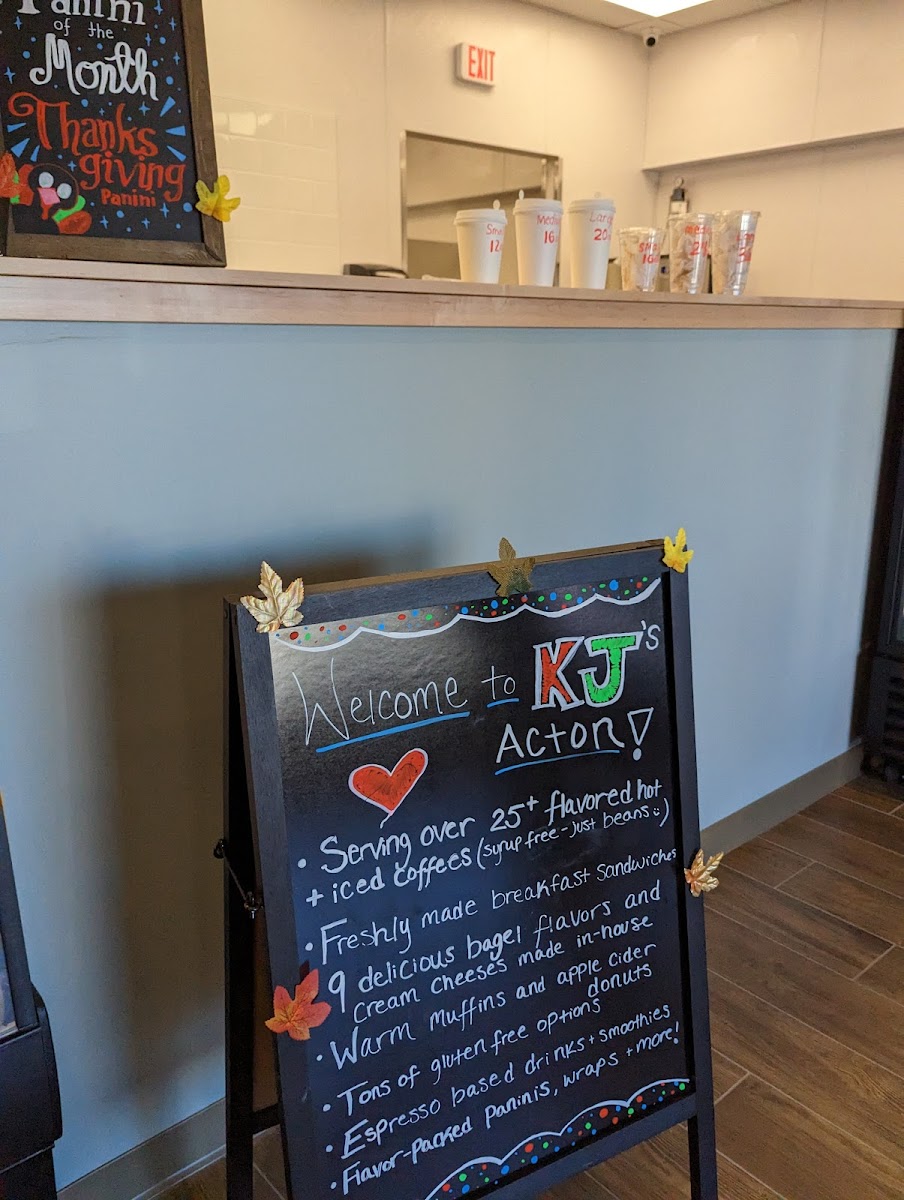 Panini
of the
Month
Thanks
giving
Panini
EXIT
Small
Medium
16
Large
20
Welcome to KJ's
Acton!
• Serving over 25+ flavored hot
+ iced coffees (syrup free - just beans :)
• Freshly made breakfast sandwiches
• 9 delicious bagel flavors and
cream cheeses made in-house
• Warm muffins and apple cider
donuts
• Tons of gluten free options
• Espresso based drinks + smoothies
• Flavor-packed paninis, wraps + more!